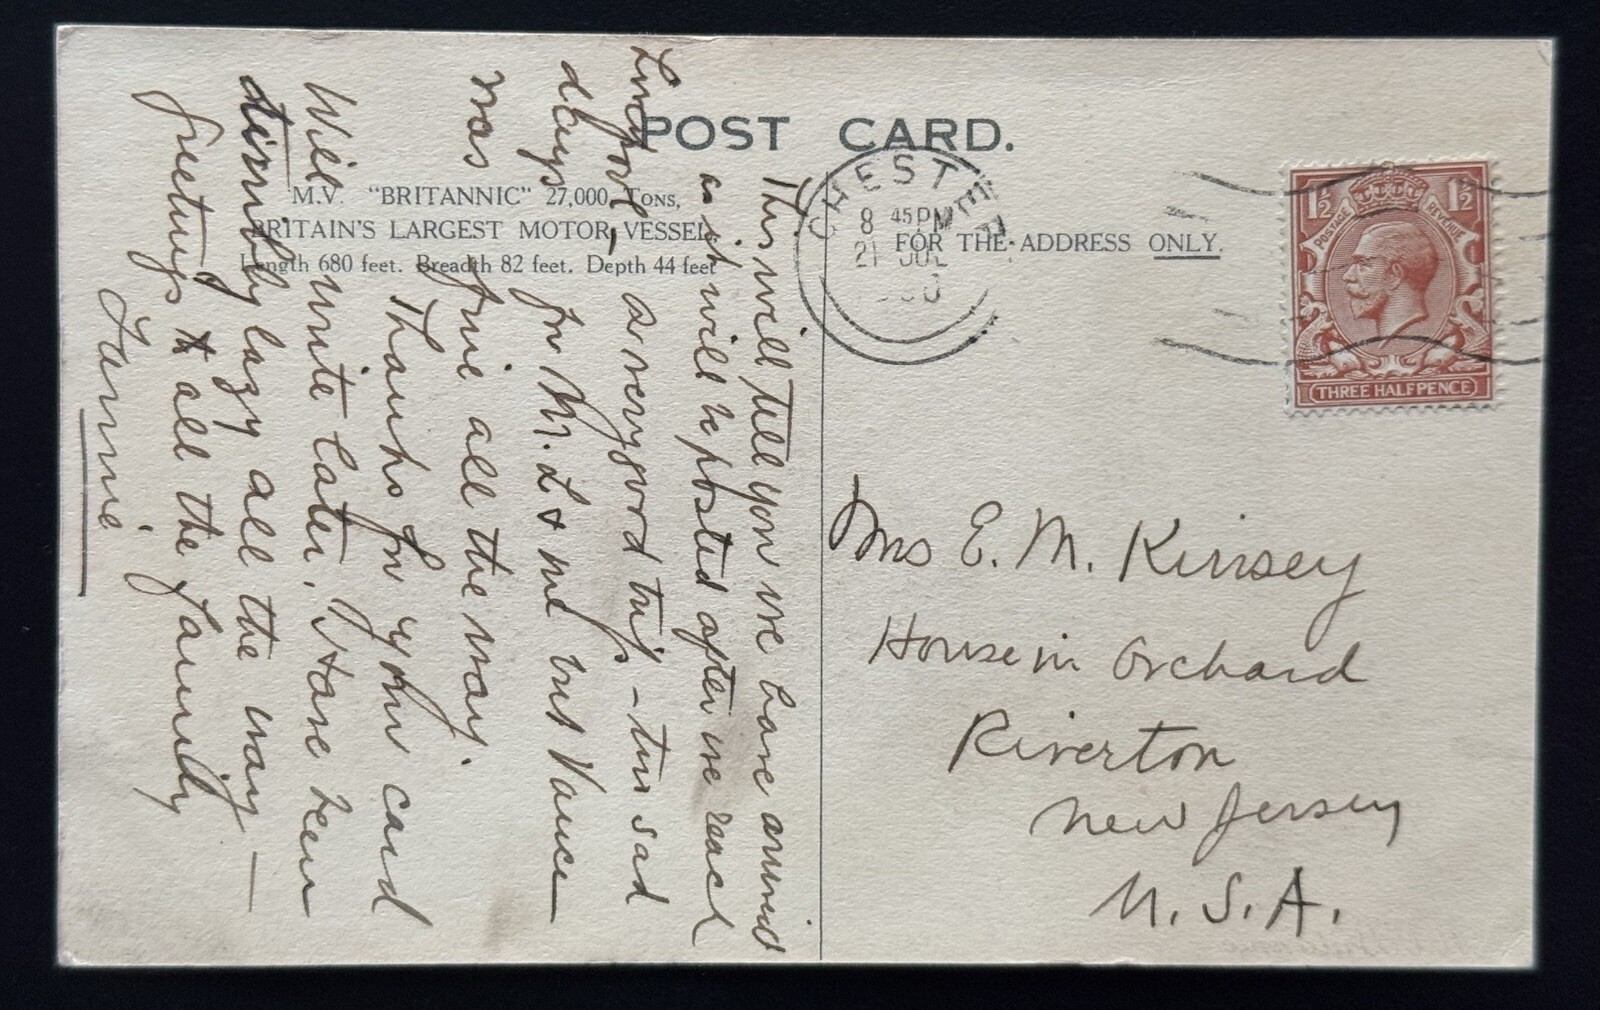 POST CARD.
M.V. "BRITANNIC" 27,000 Tons,
BRITAIN'S LARGEST MOTOR VESSEL
Length 680 feet. Breadth 82 feet. Depth 44 feet
FOR THE ADDRESS ONLY.
CHESTER
8 45 PM
21 JUL
1½ 1½
POSTAGE REVENUE
THREE HALFPENCE
This will tell you we have arrived
as it will be posted after we reach
Liverpool, a very good trip - two sad
days for Mr. L & me but Vance
was fine all the way.
Thanks for your card
Will write later. Have been
lazy all the way —
Greetings to all the family
Fannie
Mrs E. M. Kinsey
House in Orchard
Riverton
New Jersey
U.S.A.